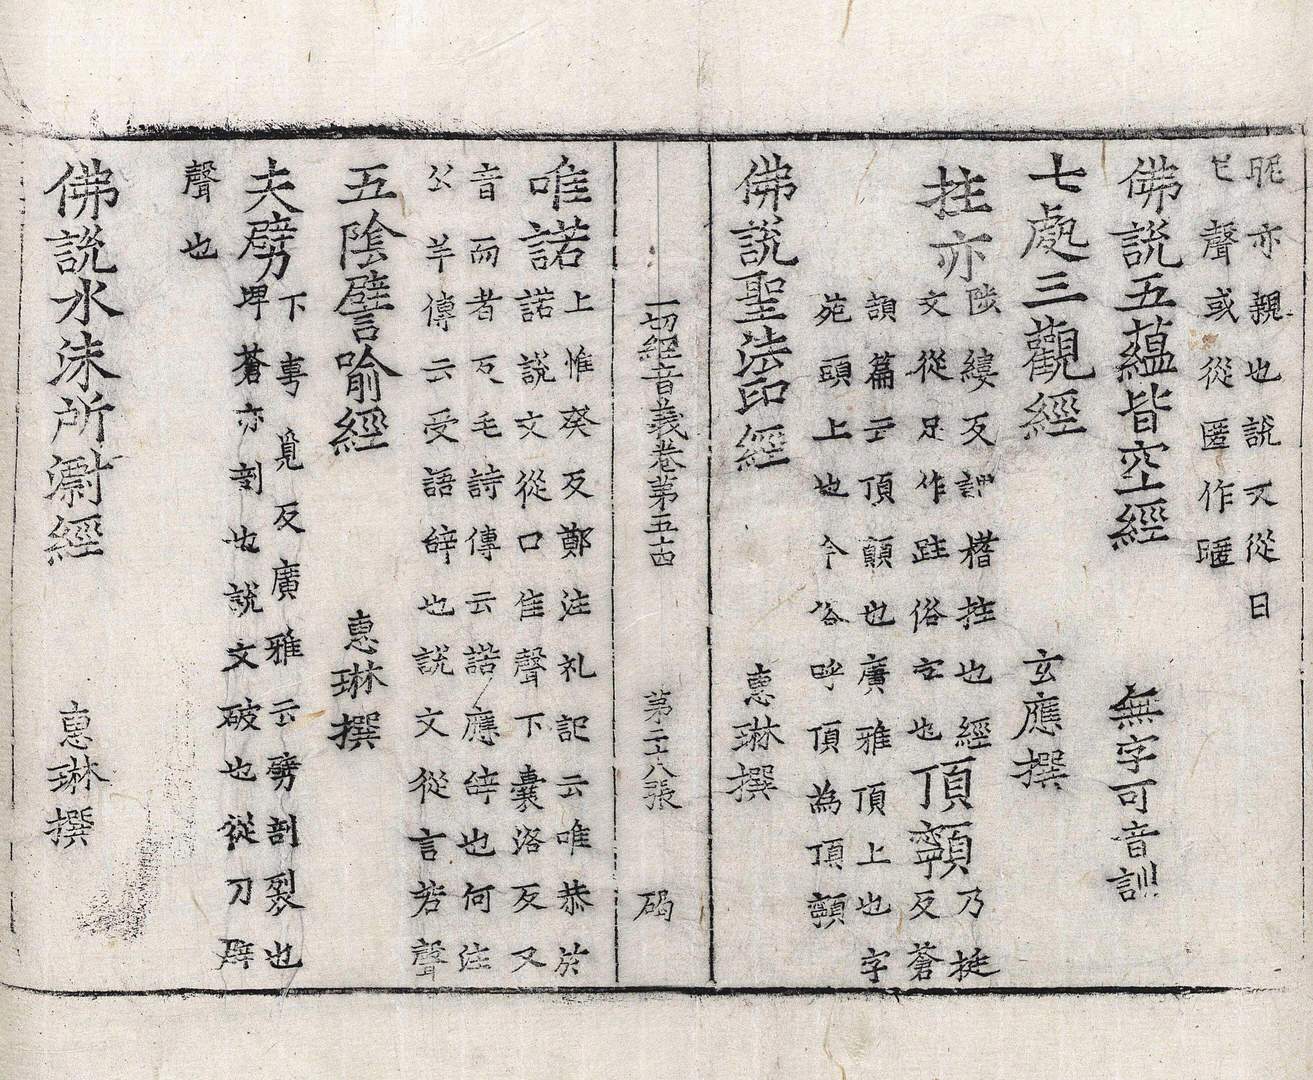 昵亦親也說文從日
匕聲或從匿作暱
佛說五蘊皆空經 無字可音訓
七處三觀經 玄應撰
拄亦 陟縷反謂榰拄也經
文從足作跓俗字也
頂𩕳 乃挺反蒼
頡篇云頂顛也廣雅頂上也字
苑頭上也今俗呼頂為頂𩕳
佛說聖法印經 惠琳撰
一切經音義卷第五十四 第二十八張 碣
唯諾 上惟癸反鄭注礼記云唯恭於
諾說文從口隹聲下囊洛反又
音而者反毛詩傳云諾應辝也何注
公羊傳云受語辝也說文從言若聲
五陰譬喻經 惠琳撰
夫劈 下專覓反廣雅云劈剖裂也
埤蒼亦剖也說文破也從刀辟
聲也
佛說水沫所漂經 惠琳撰